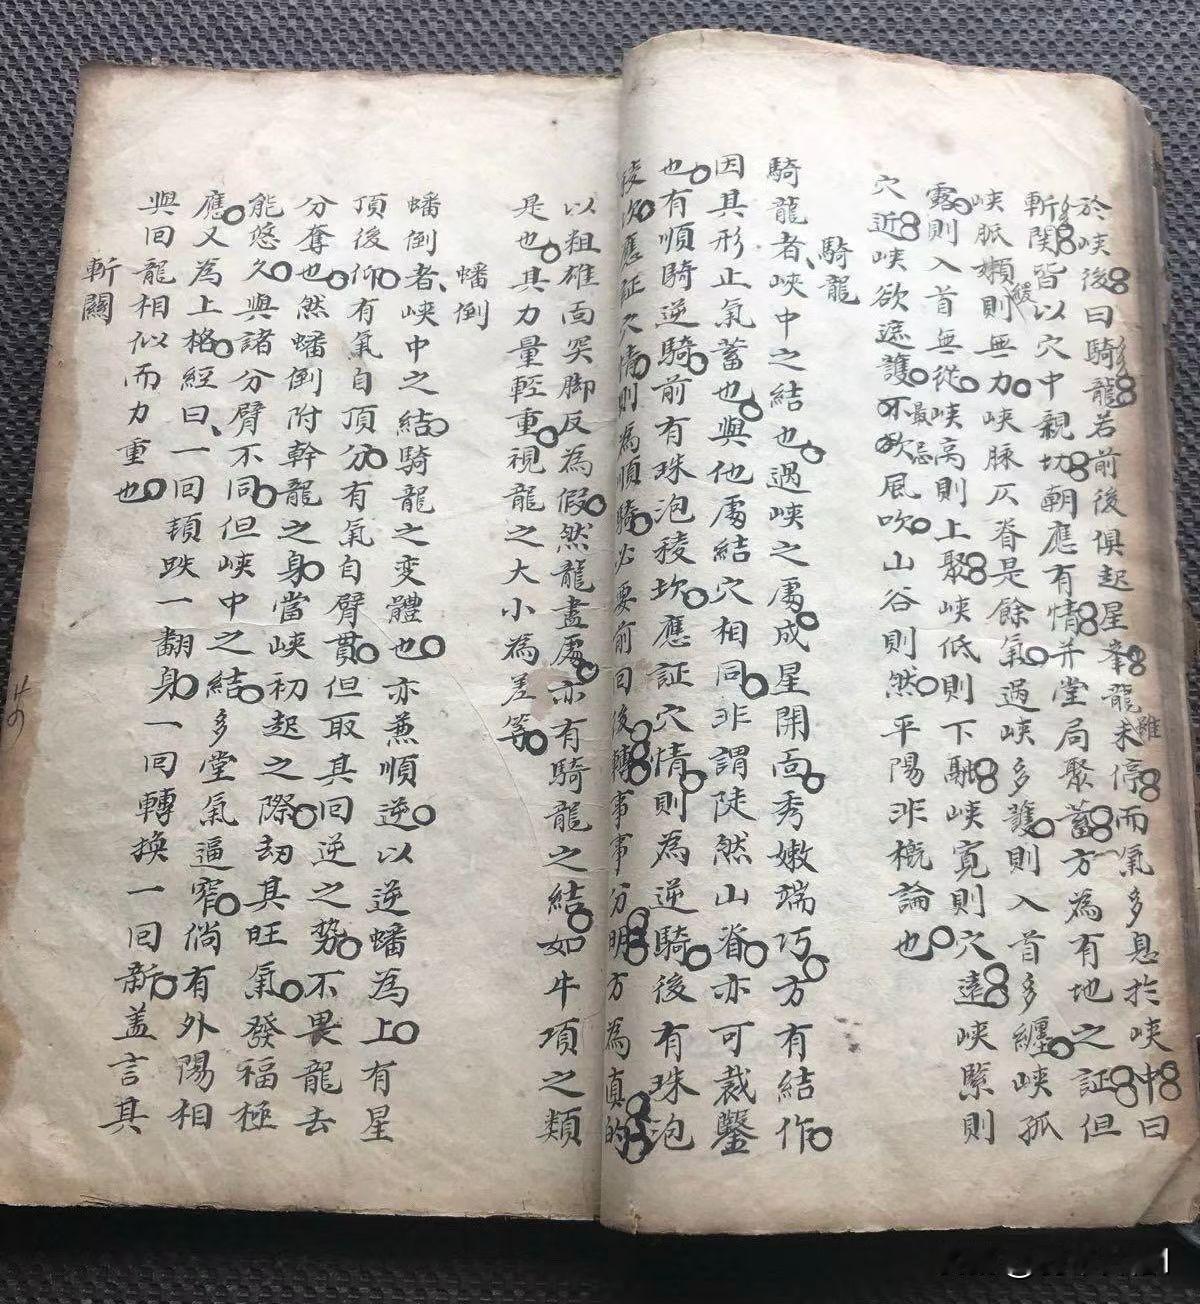 於峽後曰騎龍若前後俱起星峯龍雖未停而氣多息於峽中曰
斬関皆以穴中親切朝應有情并堂局聚蓄方為有地之証但
峽脉嬾緩則無力峽脉仄脊是餘氣過峽多護則入首多纏峽孤
露則入首無從峽高則上聚峽低則下融峽寬則穴遠峽緊則
穴近峽欲遮護最忌風吹山谷則然平陽非概論也
騎龍
騎龍者峽中之結也過峽之處成星開面秀嫩端巧方有結作
因其形止氣蓄也與他處結穴相同非謂陡然山脊亦可裁鑿
也有順騎逆騎前有珠泡稜坎應証穴情則為逆騎後有珠泡
稜坎應証穴情則為順騎必要前回後轉事事分明方為真的
以粗雄面哭脚反為假然龍盡處亦有騎龍之結如牛項之類
是也其力量輕重視龍之大小為差等
蟠倒
蟠倒者峽中之結騎龍之变體也亦兼順逆以逆蟠為上有星
頂後仰有氣自頂分有氣自臂貫但取其回逆之势不畏龍去
分奪也然蟠倒附幹龍之身當峽初起之際刧其旺氣發福極
能悠久與諸分臂不同但峽中之結多堂氣逼窄倘有外陽相
應又為上格經曰一回頓跌一翻身一回轉換一回新盖言其
與回龍相似而力重也
斬關